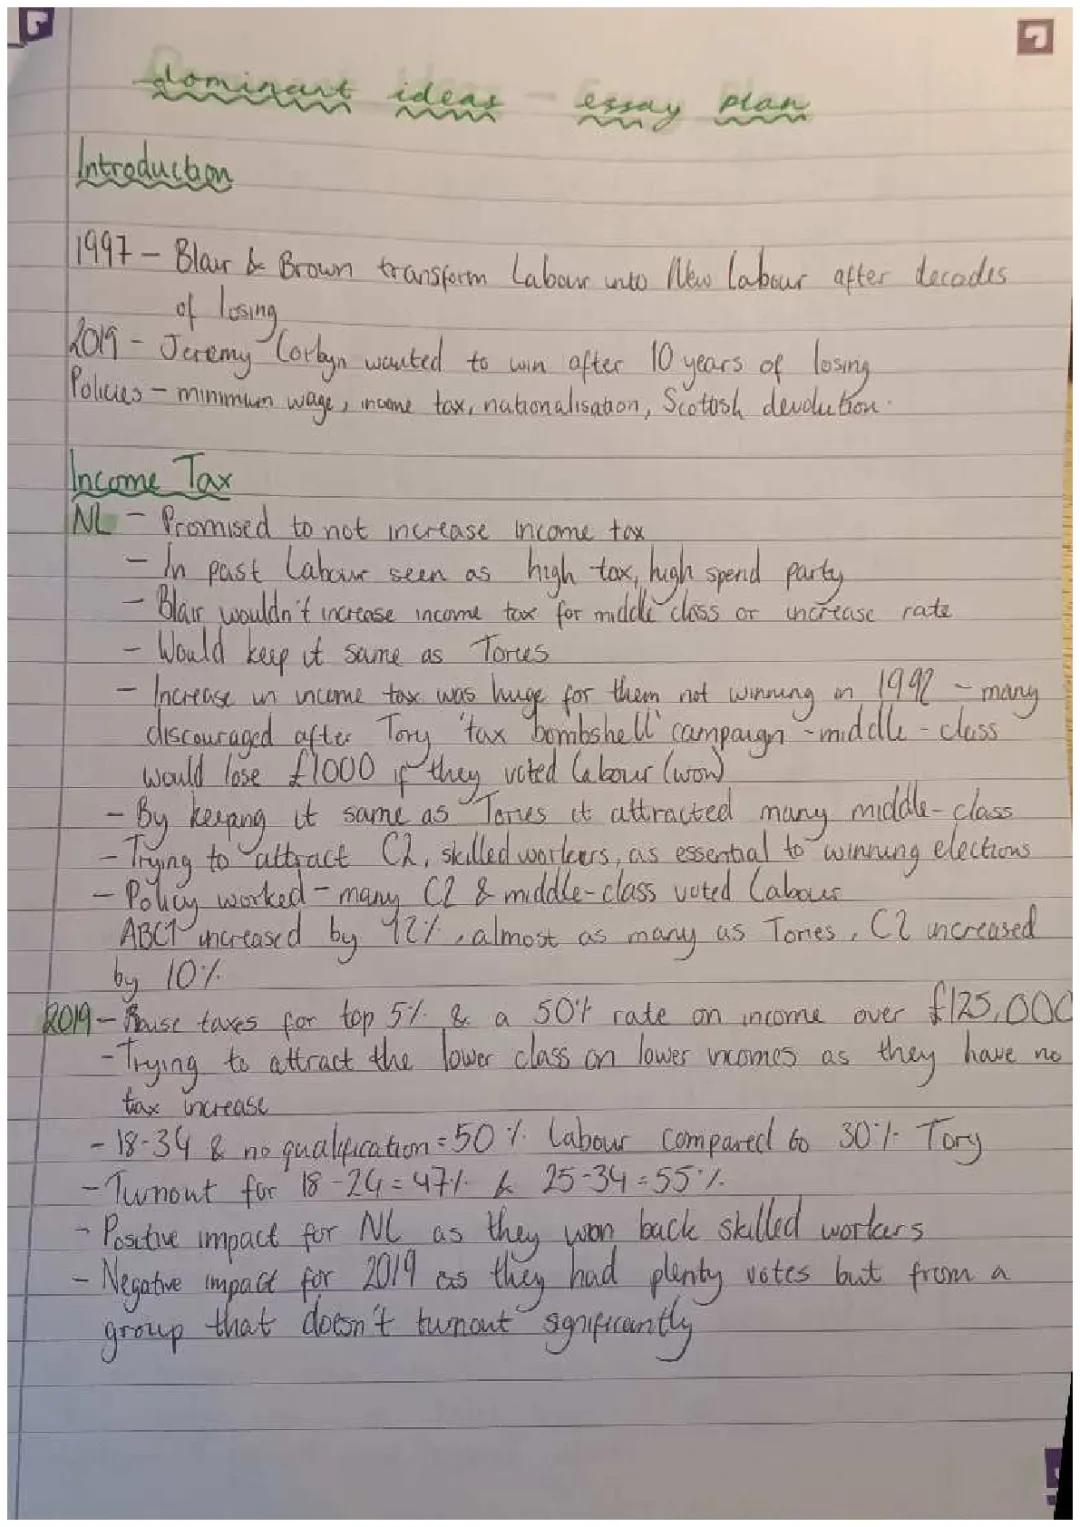 dominant ideas - essay plan
Introduction
1997 - Blair & Brown transform Labour into New Labour after decades
of losing
2019 - Jeremy Corbyn wanted to win after 10 years of losing
Policies - minimum wage, income tax, nationalisation, Scottish devolution.
Income Tax
NL - Promised to not increase income tax
- In past Labour seen as high tax, high spend party
- Blair wouldn't increase income tax for middle class or increase rate
- Would keep it same as Tories
- Increase in income tax was huge for them not winning in 1992 - many
discouraged after Tory 'tax bombshell' campaign - middle-class
would lose £1000 if they voted Labour (won)
- By keeping it same as Tories it attracted many middle-class
- Trying to attract C2, skilled workers, as essential to winning elections
- Policy worked - many C2 & middle-class voted Labour
ABC1 increased by 12%, almost as many as Tories, C2 increased
by 10%
2019 - Raise taxes for top 5% & a 50% rate on income over £125,000
- Trying to attract the lower class on lower incomes as they have no
tax increase
- 18-34 & no qualification = 50% Labour compared to 30% Tory
- Turnout for 18-24 = 47% & 25-34 = 55%
- Positive impact for NL as they won back skilled workers
- Negative impact for 2019 as they had plenty votes but from a
group that doesn't turnout significantly